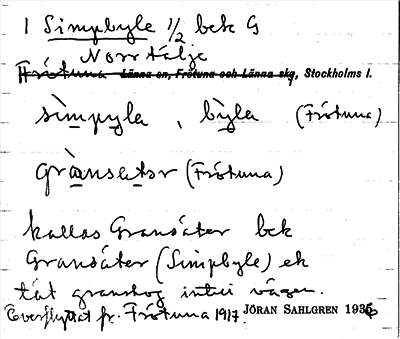 1 Simpbyle 1/2 bek G
Norrtälje
Frötuna Länna sn, Frötuna och Länna skg, Stockholms l.
sìmpyla, bỳla (Frötuna)
grànsetər (Frötuna)
kallas Gransäter bek
Gransäter (Simpbyle) ek
tät granskog intill vägen.
Överflyttat fr. Frötuna 1917. JÖRAN SAHLGREN 1936